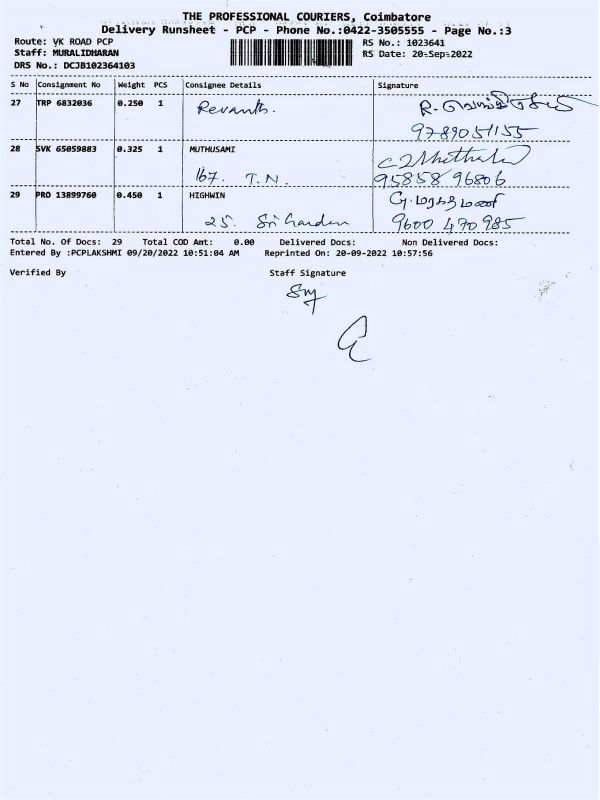 THE PROFESSIONAL COURIERS, Coimbatore
Delivery Runsheet - PCP - Phone No.:0422-3505555 - Page No.:3
Route: VK ROAD PCP RS No.: 1023641
Staff: MURALIDHARAN RS Date: 20-Sep-2022
DRS No.: DCJB102364103
S No Consignment No Weight PCS Consignee Details Signature
27 TRP 6832036 0.250 1 Revanth. R.
9789051155
28 SVK 65059883 0.325 1 MUTHUSAMI
167. T.N 95858 96806
29 PRO 13899760 0.450 1 HIGHWIN
25. Sri Garden 9600 470 985
Total No. Of Docs: 29 Total COD Amt: 0.00 Delivered Docs: Non Delivered Docs:
Entered By :PCPLAKSHMI 09/20/2022 10:51:04 AM Reprinted On: 20-09-2022 10:57:56
Verified By Staff Signature